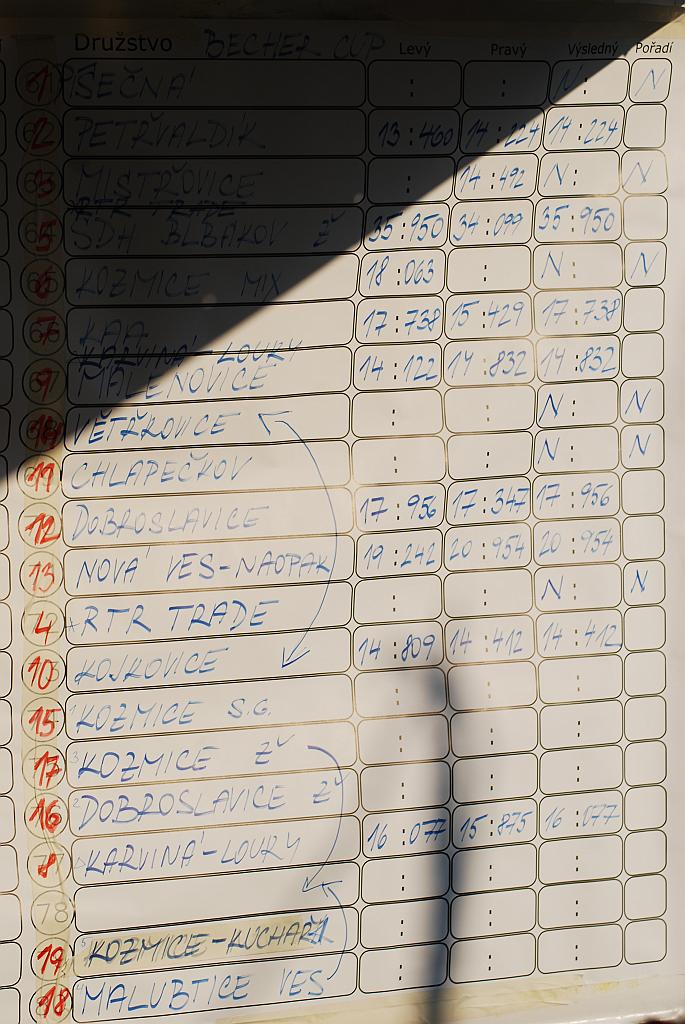 Družstvo BECHER CUP Levý Pravý Výsledný Pořadí
1 SEČNÁ : : N: N
2 PETŘVALDÍK 13:460 14:224 14:224
3 MISTŘOVICE : 14:492 N: N
RTR TRADE
5 SDH BLBÁKOV ŽV 35:950 34:099 35:950
6 KOZMICE MIX 18:063 : N: N
7 KAA 17:738 15:429 17:738
KARVINÁ-LOUKY
9 MALENOVICE 14:122 14:832 14:832
14 VĚTŘKOVICE : : N: N
11 CHLAPEČKOV : : N: N
12 DOBROSLAVICE 17:956 17:347 17:956
13 NOVÁ VES-NAOPAK 19:242 20:954 20:954
4 RTR TRADE : : N: N
10 KOJKOVICE 14:809 14:412 14:412
15 KOZMICE S.G. : : :
17 3 KOZMICE Ž : : :
16 2 DOBROSLAVICE Ž : : :
8 KARVINÁ-LOUKY 16:077 15:875 16:077
78 : : :
19 5 KOZMICE-KUCHAŘI : : :
18 MALUBTICE VES : : :